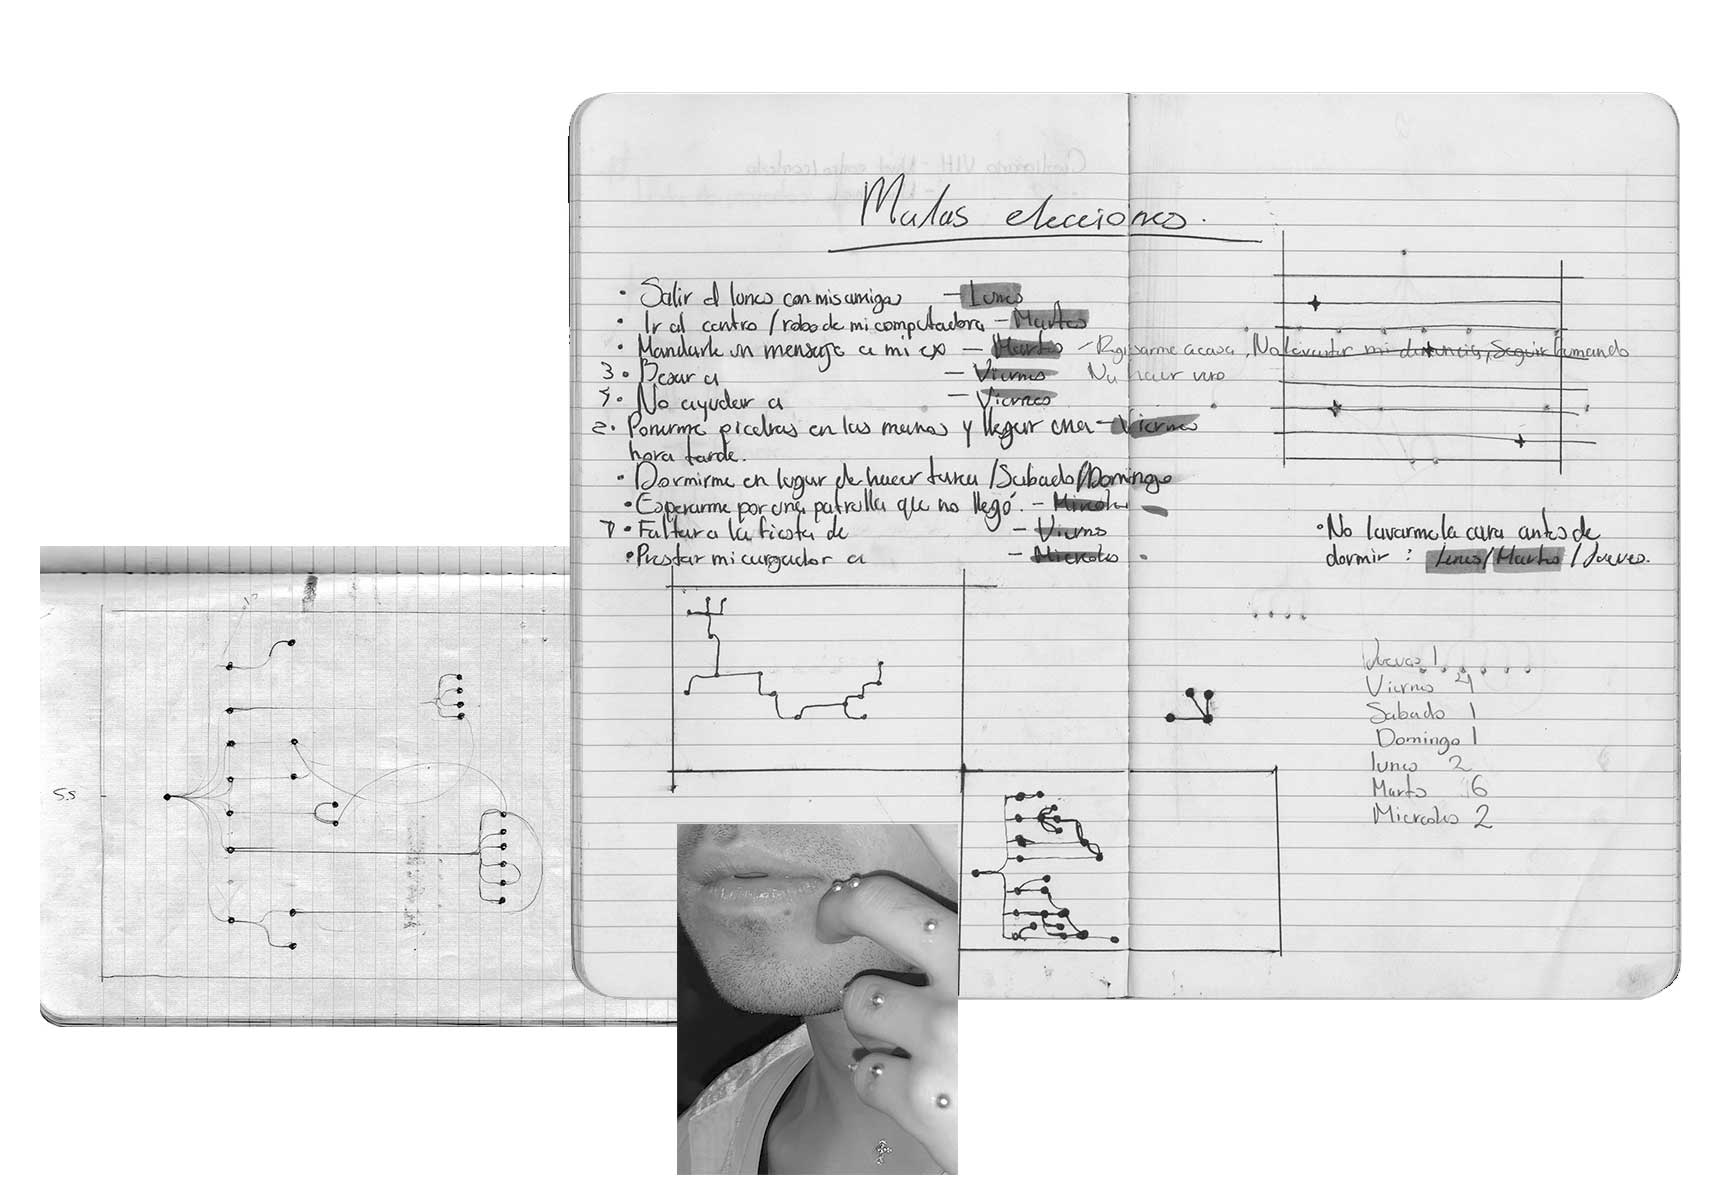 Malas elecciones.
• Salir el lunes con mis amigas — Lunes
• Ir al centro / robo de mi computadora — Martes
• Mandarle un mensaje a mi ex — Martes – Regresarme a casa, No levantar mi denuncia, Seguir fumando
3. • Besar a — Viernes No hacer
• No ayudar a — Viernes
2. • Ponerme piedras en las manos y llegar una — Viernes
hora tarde.
• Dormirme en lugar de hacer tarea / Sabado / Domingo
• Esperarme por una patrulla que no llegó. –
• Faltar a la fiesta de – Viernes
• Prestar mi cargador a –
• No lavarme la cara antes de
dormir : Lunes / Martes / Jueves.
Jueves 1
Viernes 4
Sabado 1
Domingo 1
lunes 2
Martes 6
Miercoles 2